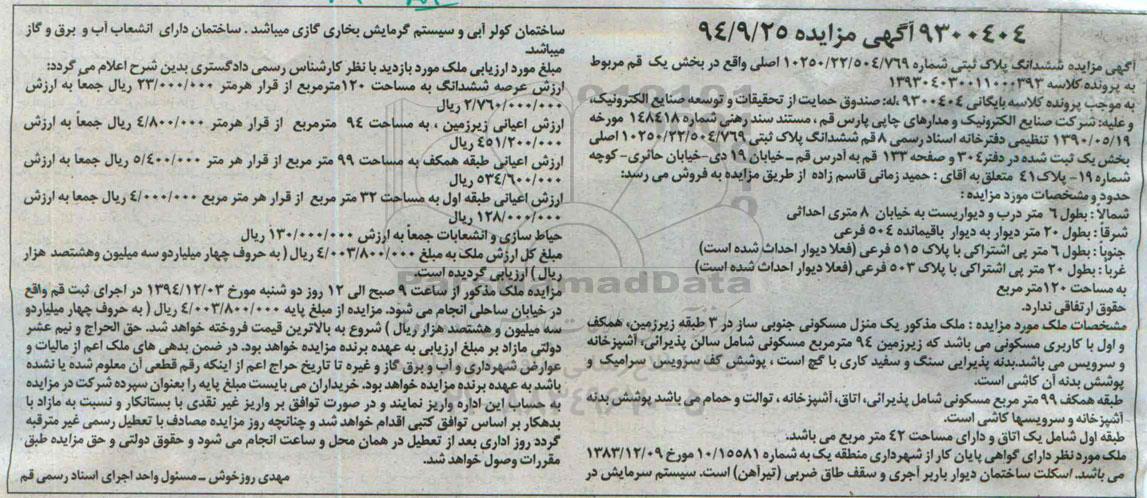 ۹۳۰۰۴۰۴ آگهی مزایده ۹۴/۹/۲۵
آگهی مزایده ششدانگ پلاک ثبتی شماره ۱۰۲۵۰/۲۲/۵۰۴/۷۶۹ اصلی واقع در بخش یک قم مربوط
به پرونده کلاسه ۱۳۹۳۰۴۰۳۰۰۱۱۰۰۰۳۹۳
به موجب پرونده کلاسه بایگانی ۹۳۰۰۴۰۴ له: صندوق حمایت از تحقیقات و توسعه صنایع الکترونیک،
و علیه: شرکت صنایع الکترونیک و مدارهای چاپی پارس قم ، مستند سند رهنی شماره ۱۴۸۴۱۸ مورخه
۱۳۹۰/۰۵/۱۹ تنظیمی دفترخانه اسناد رسمی ۸ قم ششدانگ پلاک ثبتی ۱۰۲۵۰/۲۲/۵۰۴/۷۶۹ اصلی
بخش یک ثبت شده در دفتر ۳۰۴ و صفحه ۱۳۳ قم به آدرس قم – خیابان ۱۹ دی-خیابان حائری- کوچه
شماره ۱۹- پلاک ۴۱ متعلق به آقای : حمید زمانی قاسم زاده از طریق مزایده به فروش می رسد:
حدود و مشخصات مورد مزایده :
شمالا : بطول ۶ متر درب و دیواریست به خیابان ۸ متری احداثی
شرقاً : بطول ۲۰ متر دیوار به دیوار باقیمانده ۵۰۴ فرعی
جنوباً : بطول ۶ متر پی اشتراکی با پلاک ۵۱۵ فرعی (فعلا دیوار احداث شده است)
غربا : بطول ۲۰ متر پی اشتراکی با پلاک ۵۰۳ فرعی (فعلا دیوار احداث شده است)
به مساحت ۱۲۰ متر مربع
حقوق ارتفاقی ندارد.
مشخصات ملک مورد مزایده : ملک مذکور یک منزل مسکونی جنوبی ساز در ۳ طبقه زیرزمین، همکف
و اول با کاربری مسکونی می باشد که زیرزمین ۹۴ مترمربع مسکونی شامل سالن پذیرائی، آشپزخانه
و سرویس می باشد.بدنه پذیرایی سنگ و سفید کاری با گچ است ، پوشش کف سرویس سرامیک و
پوشش بدنه آن کاشی است.
طبقه همکف ۹۹ متر مربع مسکونی شامل پذیرائی، اتاق، آشپزخانه ، توالت و حمام می باشد پوشش بدنه
آشپزخانه و سرویسها کاشی است.
طبقه اول شامل یک اتاق و دارای مساحت ۴۲ متر مربع می باشد.
ملک مورد نظر دارای گواهی پایان کار از شهرداری منطقه یک به شماره ۱۰/۱۵۵۸۱ مورخ ۱۳۸۳/۱۲/۰۹
می باشد. اسکلت ساختمان دیوار باربر آجری و سقف طاق ضربی (تیرآهن) است. سیستم سرمایش در
ساختمان کولر آبی و سیستم گرمایش بخاری گازی میباشد . ساختمان دارای انشعاب آب و برق و گاز
میباشد.
مبلغ مورد ارزیابی ملک مورد بازدید با نظر کارشناس رسمی دادگستری بدین شرح اعلام می گردد:
ارزش عرصه ششدانگ به مساحت ۱۲۰مترمربع از قرار هرمتر ۲۳/۰۰۰/۰۰۰ ریال جمعاً به ارزش
۲/۷۶۰/۰۰۰/۰۰۰ ریال
ارزش اعیانی زیرزمین ، به مساحت ۹۴ مترمربع از قرار هرمتر ۴/۸۰۰/۰۰۰ ریال جمعاً به ارزش
۴۵۱/۲۰۰/۰۰۰ ریال
ارزش اعیانی طبقه همکف به مساحت ۹۹ متر مربع از قرار هر متر ۵/۴۰۰/۰۰۰ ریال جمعا به ارزش
۵۳۴/۶۰۰/۰۰۰ ریال
ارزش اعیانی طبقه اول به مساحت ۳۲ متر مربع از قرار هر متر مربع ۴/۰۰۰/۰۰۰ ریال جمعا به ارزش
۱۲۸/۰۰۰/۰۰۰ ریال
حیاط سازی و انشعابات جمعاً به ارزش ۱۳۰/۰۰۰/۰۰۰ ریال
مبلغ کل ارزش ملک به مبلغ ۴/۰۰۳/۸۰۰/۰۰۰ ریال ( به حروف چهار میلیاردو سه میلیون وهشتصد هزار
ریال ) ارزیابی گردیده است.
مزایده ملک مذکور از ساعت ۹ صبح الی ۱۲ روز دو شنبه مورخ ۱۳۹۴/۱۲/۰۳ در اجرای ثبت قم واقع
در خیابان ساحلی انجام می شود. مزایده از مبلغ پایه ۴/۰۰۳/۸۰۰/۰۰۰ ریال ( به حروف چهار میلیاردو
سه میلیون و هشتصد هزار ریال ) شروع به بالاترین قیمت فروخته خواهد شد. حق الحراج و نیم عشر
دولتی مازاد بر مبلغ ارزیابی به عهده برنده مزایده خواهد بود. در ضمن بدهی های ملک اعم از مالیات و
عوارض شهرداری و آب و برق گاز و غیره تا تاریخ حراج اعم از اینکه رقم قطعی آن معلوم شده یا نشده
باشد به عهده برنده مزایده خواهد بود. خریداران می بایست مبلغ پایه را بعنوان سپرده شرکت در مزایده
به حساب این اداره واریز نمایند و در صورت توافق بر واریز غیر نقدی با بستانکار و نسبت به مازاد با
بدهکار بر اساس توافق کتبی اقدام خواهد شد و چنانچه روز مزایده مصادف با تعطیل رسمی غیر مترقبه
گردد روز اداری بعد از تعطیل در همان محل و ساعت انجام می شود و حقوق دولتی و حق مزایده طبق
مقررات وصول خواهد شد.
مهدی روزخوش – مسئول واحد اجرای اسناد رسمی قم
ParsNamadData